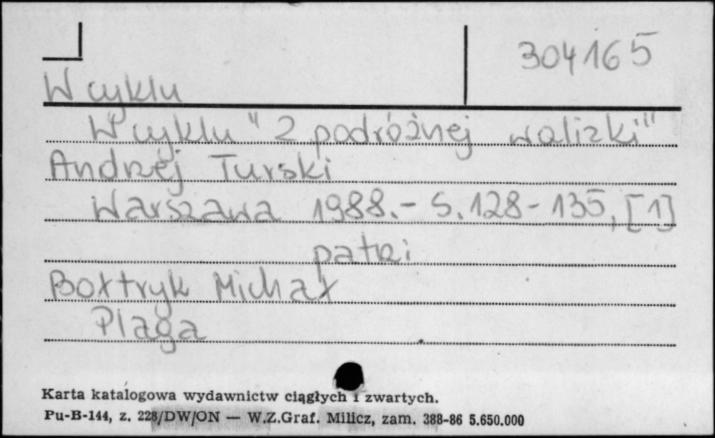 304165
W cyklu
W cyklu "Z podróżnej walizki"
Andrzej Turski
Warszawa 1988.- S.128-135, [1]
patrz
Bołtryk Michał
Plaga
Karta katalogowa wydawnictw ciągłych i zwartych.
Pu-B-144, z. 228/DW/ON — W.Z.Graf. Milicz, zam. 388-86 5.650.000